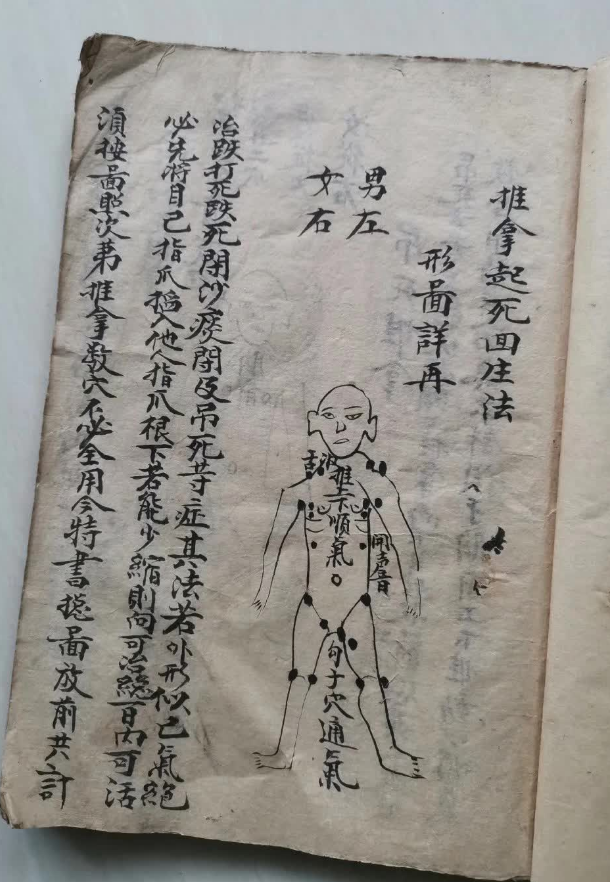 推拿起死回生法
形啚詳再
男左
女右
推下順氣
開声音
勾子穴通氣
治跌打死跌死閉沙痰閉及吊死等症其法若外形似已氣絕
必先將自己指爪搯入他人指爪根下若能少縮則向可治縂百內可活
須按啚照次第推拿数穴不必全用今特書揔啚放前共計